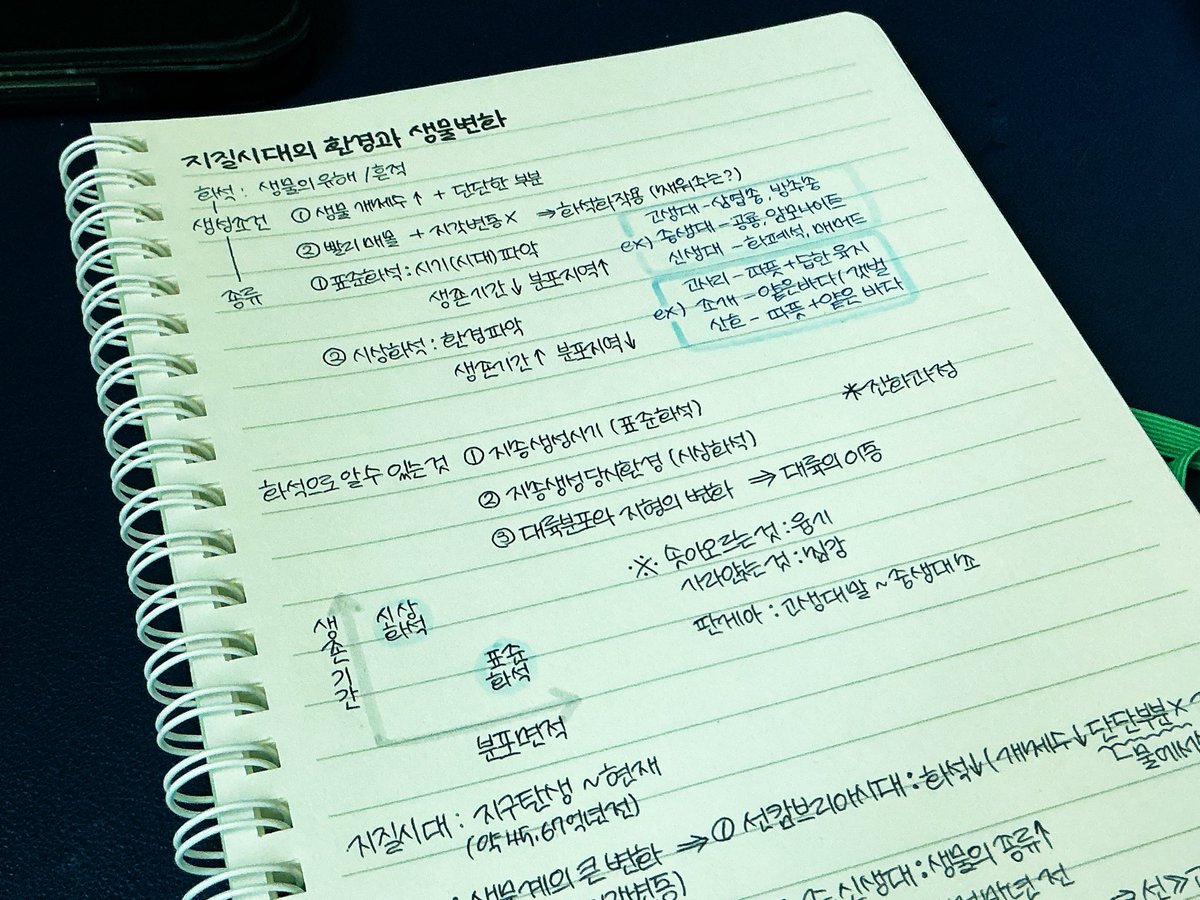 지질시대의 환경과 생물변화
화석 : 생물의 유해 / 흔적
생성조건 ① 생물 개체수 ↑ + 단단한 부분
② 빨리 매몰 + 지각변동 X ⇒ 화석화작용 (채워주는?)
종류 ① 표준화석 : 시기(시대) 파악
생존기간 ↓ 분포지역 ↑
ex) 고생대 - 삼엽충, 방추충
중생대 - 공룡, 암모나이트
신생대 - 화폐석, 매머드
② 시상화석 : 환경파악
생존기간 ↑ 분포지역 ↓
ex) 고사리 - 따뜻 + 습한 육지
조개 - 얕은바다 / 갯벌
산호 - 따뜻 + 얕은 바다
* 진화과정
화석으로 알 수 있는 것 ① 지층생성시기 (표준화석)
② 지층생성당시환경 (시상화석)
③ 대륙분포와 지형의 변화 ⇒ 대륙의 이동
※ 솟아오르는 것 : 융기
가라앉는 것 : 침강
판게아 : 고생대 말 ~ 중생대 초
생존기간
시상화석
표준화석
분포면적
지질시대 : 지구탄생 ~ 현재
(약 45.67억년전)
생물계의 큰 변화 ⇒ ① 선캄브리아시대 : 화석↑) 개체수↑ 단단부분 X
신생대 : 생물의 종류 ↑